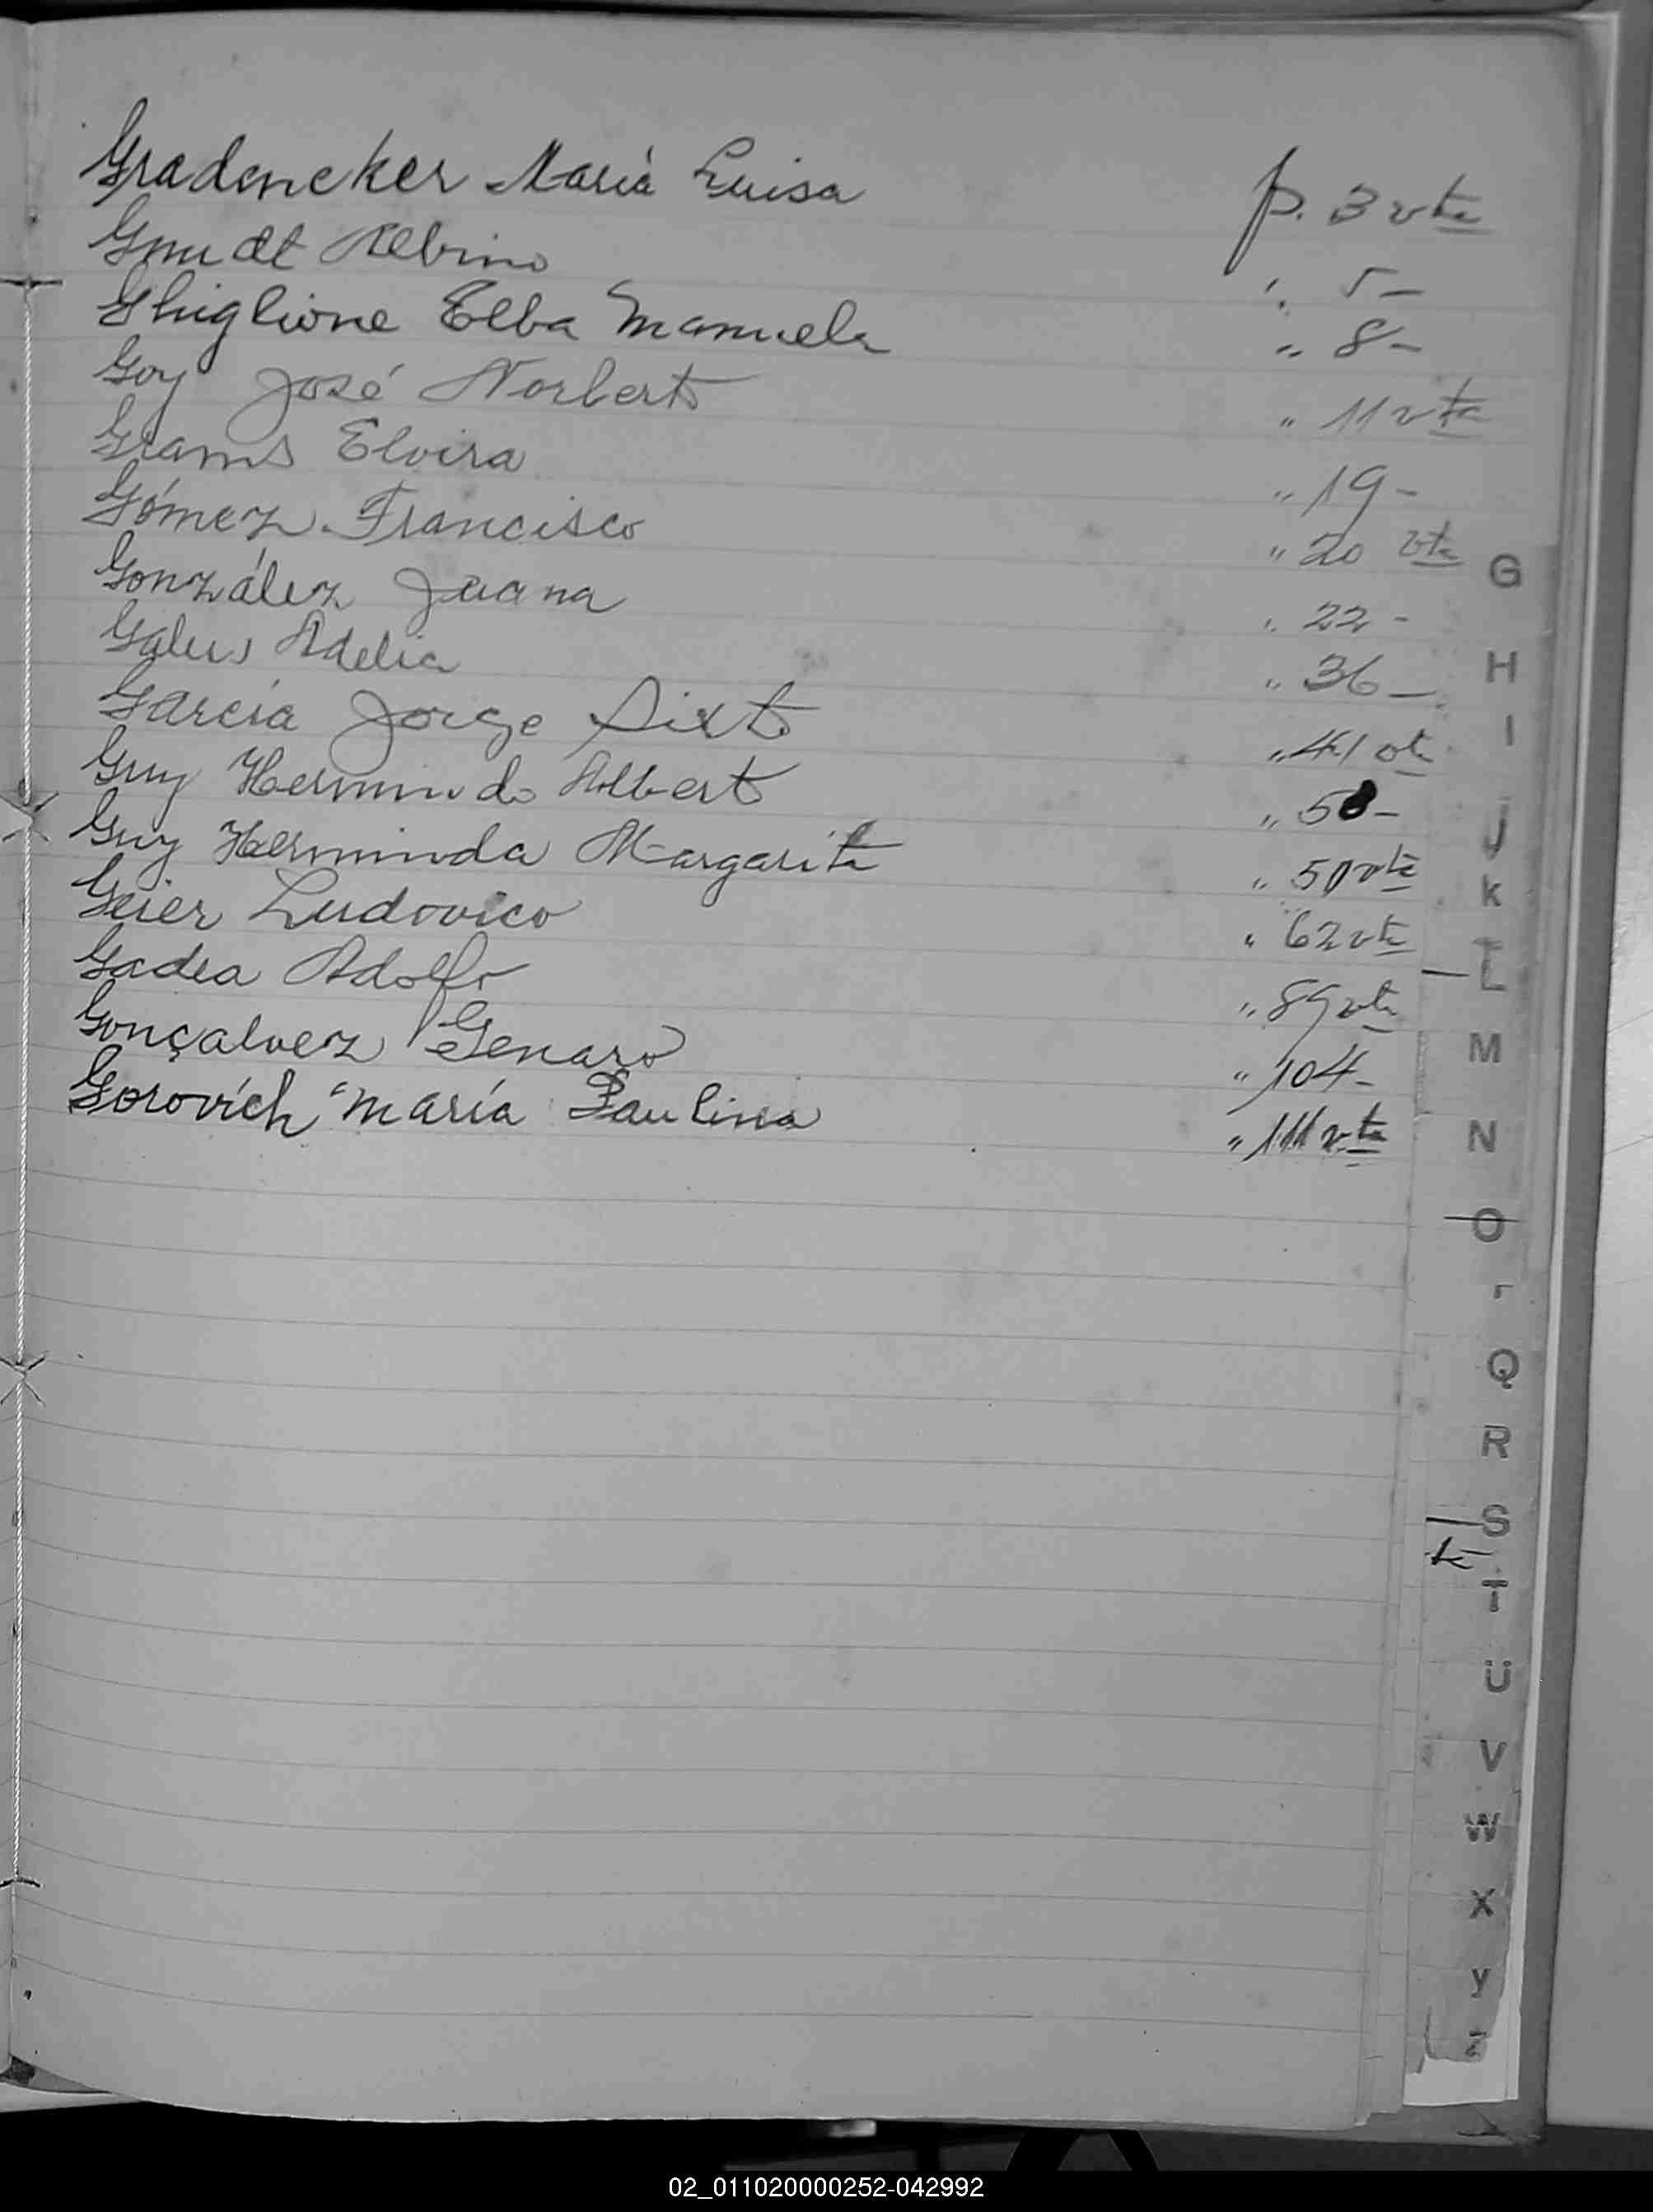 Gradeneker María Luisa p. 3 vta
Gmudt Albino " 5-
Ghiglione Elba Manuela " 8-
Goy José Norberto " 11 vta
Grams Elvira " 19-
Gómez Francisco " 20 vta
González Juana " 22-
Galus Adelia " 36-
García Jorge Sixto " 41 vta
Guy Hermindo Alberto " 50-
Guy Herminda Margarita " 50 vta
Geier Ludovico " 62 vta
Gadea Adolfo " 89 vta
Gonçalvez Genaro " 104-
Gorovich María Paulina " 111 vta
G
H
I
J
K
L
M
N
O
Q
R
S
T
U
V
W
X
Y
Z
02_011020000252-042992